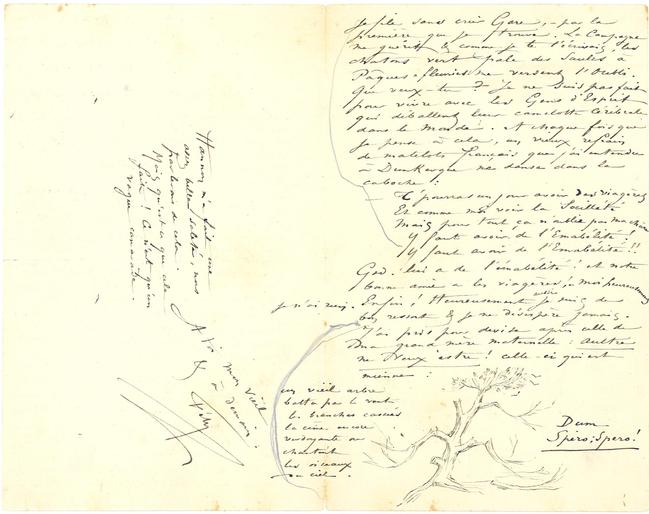 Je file sans crier Gare, - par la
première que je trouve. La Campagne
me guérit & comme je te l'écrivais, les
chatons vert pale des Saules à
Pâques-fleuries me versent l'Oubli.
Que veux-tu ? Je ne suis pas fait
pour vivre avec les Gens d'Esprit
qui déballent leur camelotte Cérébrale
dans le Monde. A chaque fois que
je pense à cela, un vieux refrain
de matelots français que j'ai entendu
à Dunkerque me danse dans la
caboche :
- Té pourras un jour avoir des viagères
Et comme moi voir la Société
Mais pour tout ça n'oublie pas ma chère
Y faut avoir de l'Emabélité !
Y faut avoir de l'Emabélité !!
God. lui a de l'émabélité ! et notre
bonne amie a les viagères, moi malheureusement
je n'ai rien. Enfin ! Heureusement je suis de
bon ressort & je ne désespère jamais.
J'ai pris pour devise après celle de
ma grand mère maternelle : aultre
ne Veux estre ! celle-ci qui est
mienne :
un vieil arbre
battu par le vent
les branches cassées
la cime encore
verdoyante où
chantent
les oiseaux
du ciel.
Dum
Spiro, Spero !
Hannon m'a fait une
assez belle saleté, nous
parlerons de cela.
Mais qu'est-ce que cela
fait ! Ce n'est qu'un
vague camarade.
A toi mon vieil
& à demain.
Fély